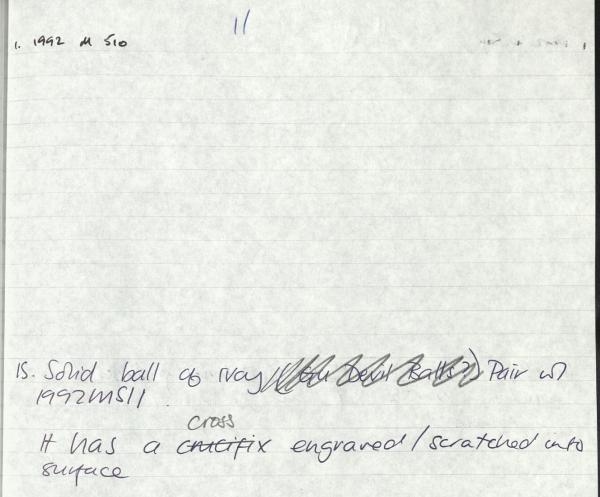 11
1. 1992 M 510
15. Solid ball of ivory (for Devil Balls?) Pair w/
1992M511.
cross
It has a crucifix engraved/scratched into
surface